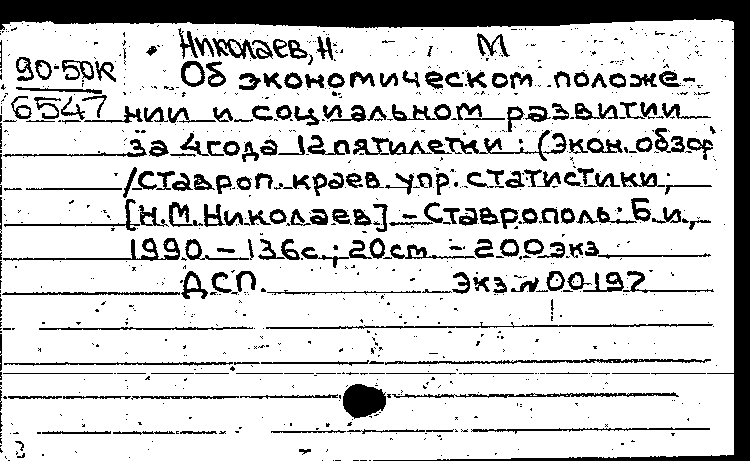 Николаев, Н М
90-50К Об экономическом положе-
6547 нии и социальном развитии
за 4 года 12 пятилетки : (Экон. обзор)
/Ставроп. краев. упр. статистики;
[Н.М.Николаев]. – Ставрополь: Б.и.,
1990. – 136с.; 20см. – 200экз.
ДСП. Экз.№ 00197